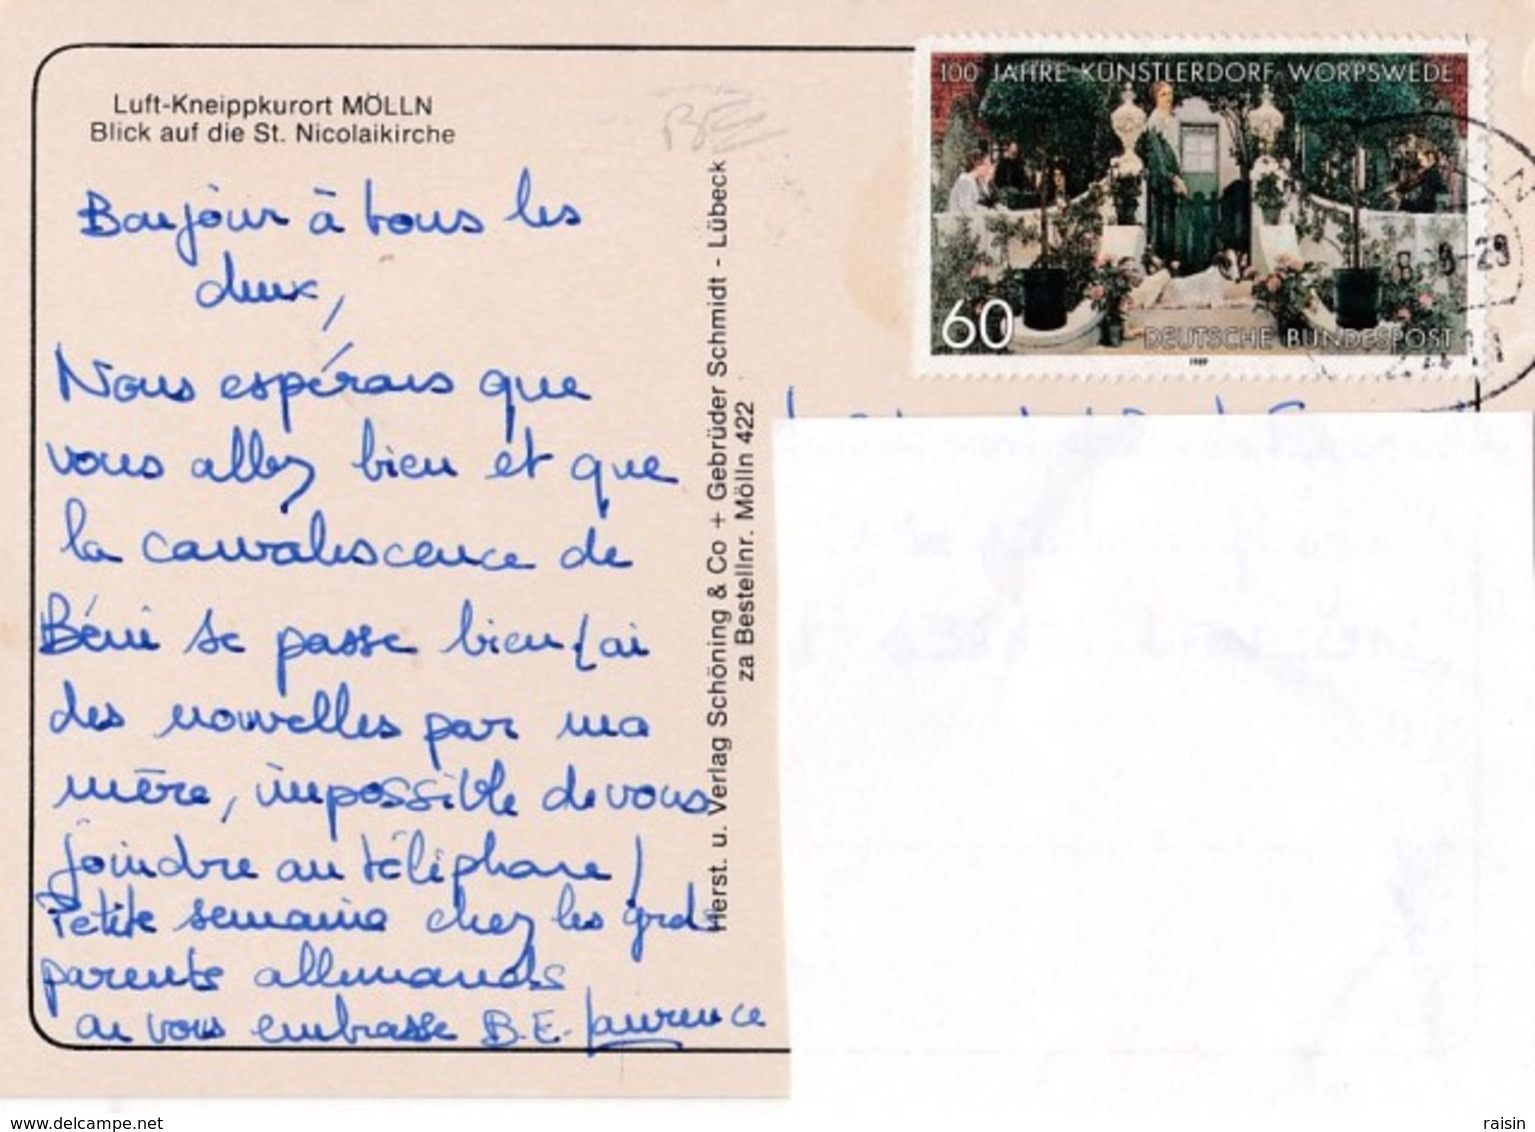 Luft-Kneippkurort MÖLLN
Blick auf die St. Nicolaikirche
Bonjour à tous les
deux,
Nous espérons que
vous allez bien et que
la convalescence de
Béni se passe bien j'ai
des nouvelles par ma
mère, impossible de vous
joindre au téléphone !
Petite semaine chez les grds
parents allemands
on vous embrasse B.E. Laurence
Herst. u. Verlag Schöning & Co + Gebrüder Schmidt - Lübeck
za Bestellnr. Mölln 422
100 JAHRE KÜNSTLERDORF WORPSWEDE
60
DEUTSCHE BUNDESPOST
1989
BE
delcampe.net
raisin